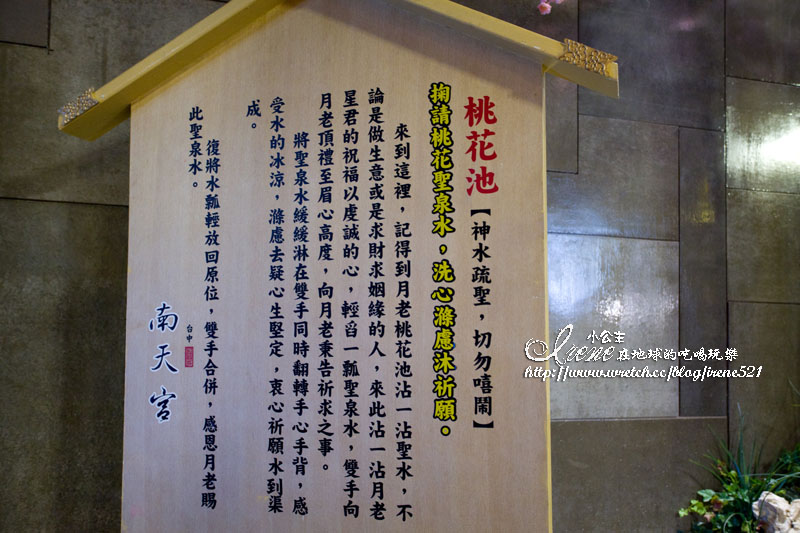 桃花池【神水疏聖，切勿嘻鬧】
掬請桃花聖泉水，洗心滌慮沐祈願。
來到這裡，記得到月老桃花池沾一沾聖水，不
論是做生意或是求財求姻緣的人，來此沾一沾月老
星君的祝福以虔誠的心，輕舀一瓢聖泉水，雙手向
月老頂禮至眉心高度，向月老秉告祈求之事。
將聖泉水緩緩淋在雙手同時翻轉手心手背，感
受水的冰涼，滌慮去疑心生堅定，衷心祈願水到渠
成。
復將水瓢輕放回原位，雙手合併，感恩月老賜
此聖泉水。
台中
南天宮
小公主
Irene在地球的吃喝玩樂
http://www.wretch.cc/blog/irene521